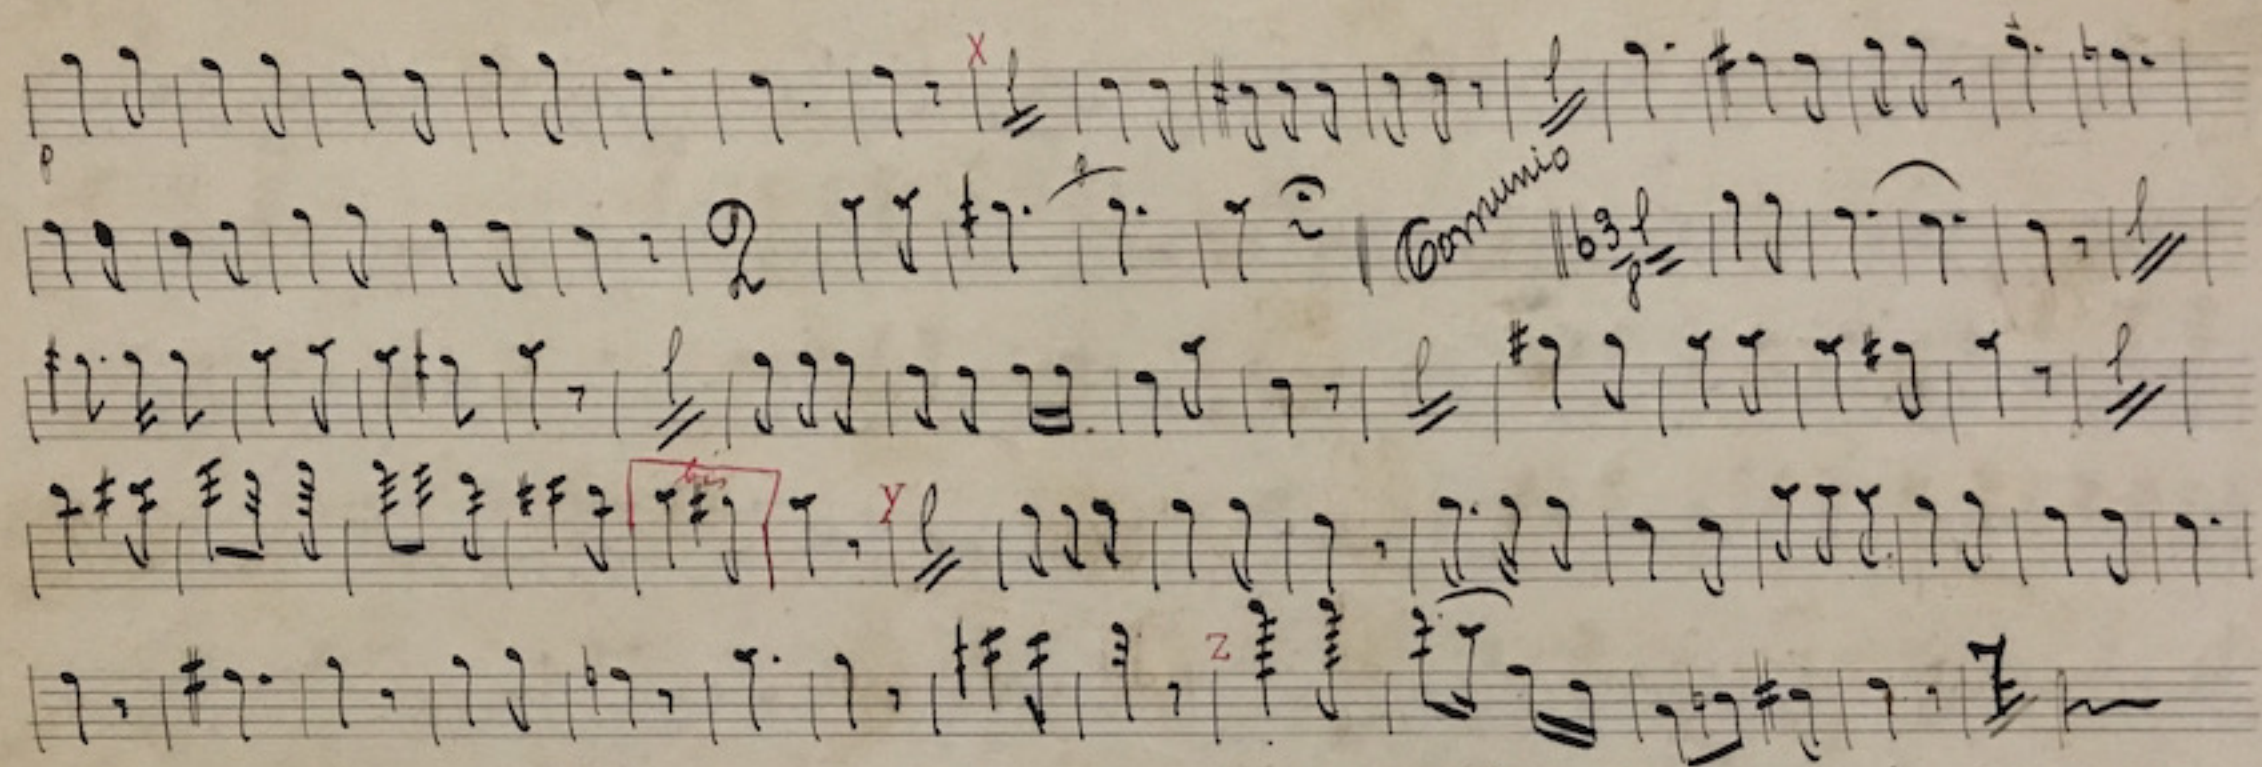 X
p
2 Comunio 3 8
bis Y
Z